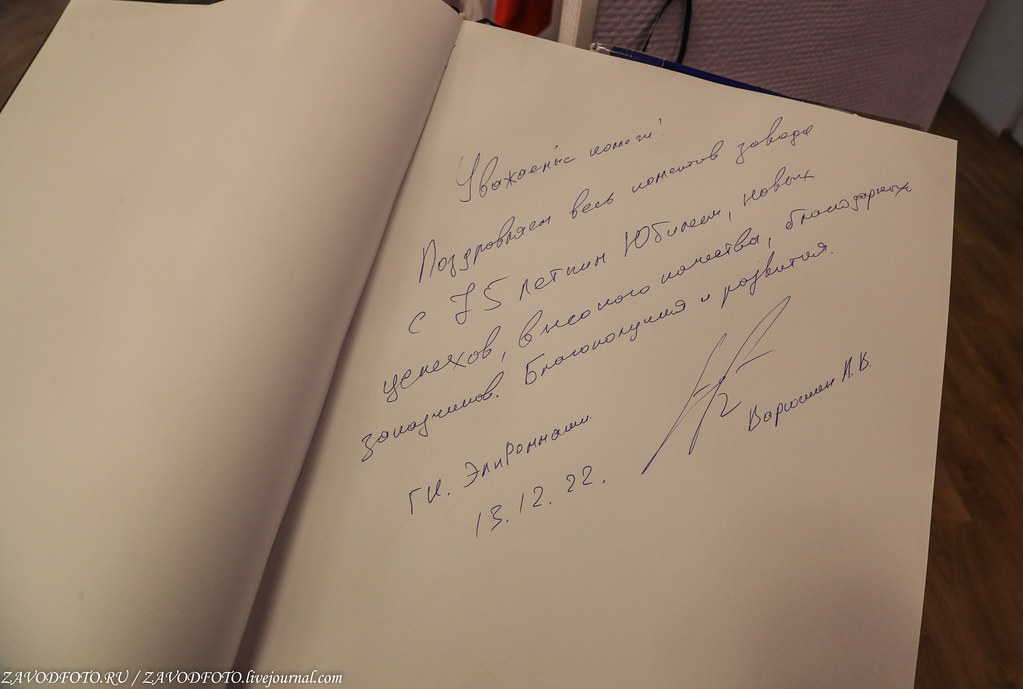 Уважаемые коллеги!
Поздравляем весь коллектив завода
с 75 летним Юбилеем, новых
успехов, высокого качества, благодарных
заказчиков. Благополучия и развития.
ГК.
13.12.22.
ZAVODFOTO.RU / ZAVODFOTO.livejournal.com